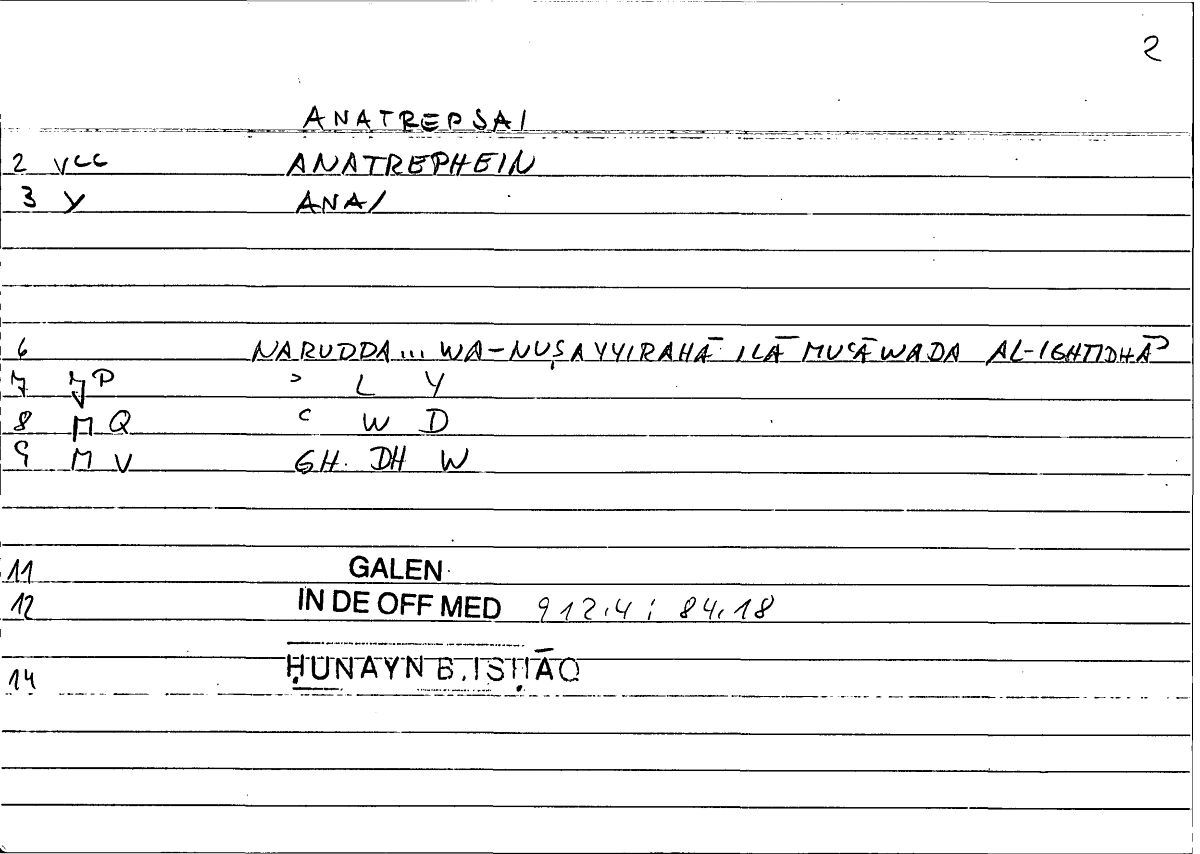 2
ANATREPSAI
2 VCC ANATREPHEIN
3 Y ANA/
6 NARUDDA... WA-NUṢAYYIRAHĀ ILĀ MUʿĀWADA AL-IGHTIDHĀʾ
7 JP ʾ L Y
8 MQ ʿ W D
9 MV GH DH W
11 GALEN
12 IN DE OFF MED 912.4 ; 84.18
14 ḤUNAYN B. ISḤĀQ